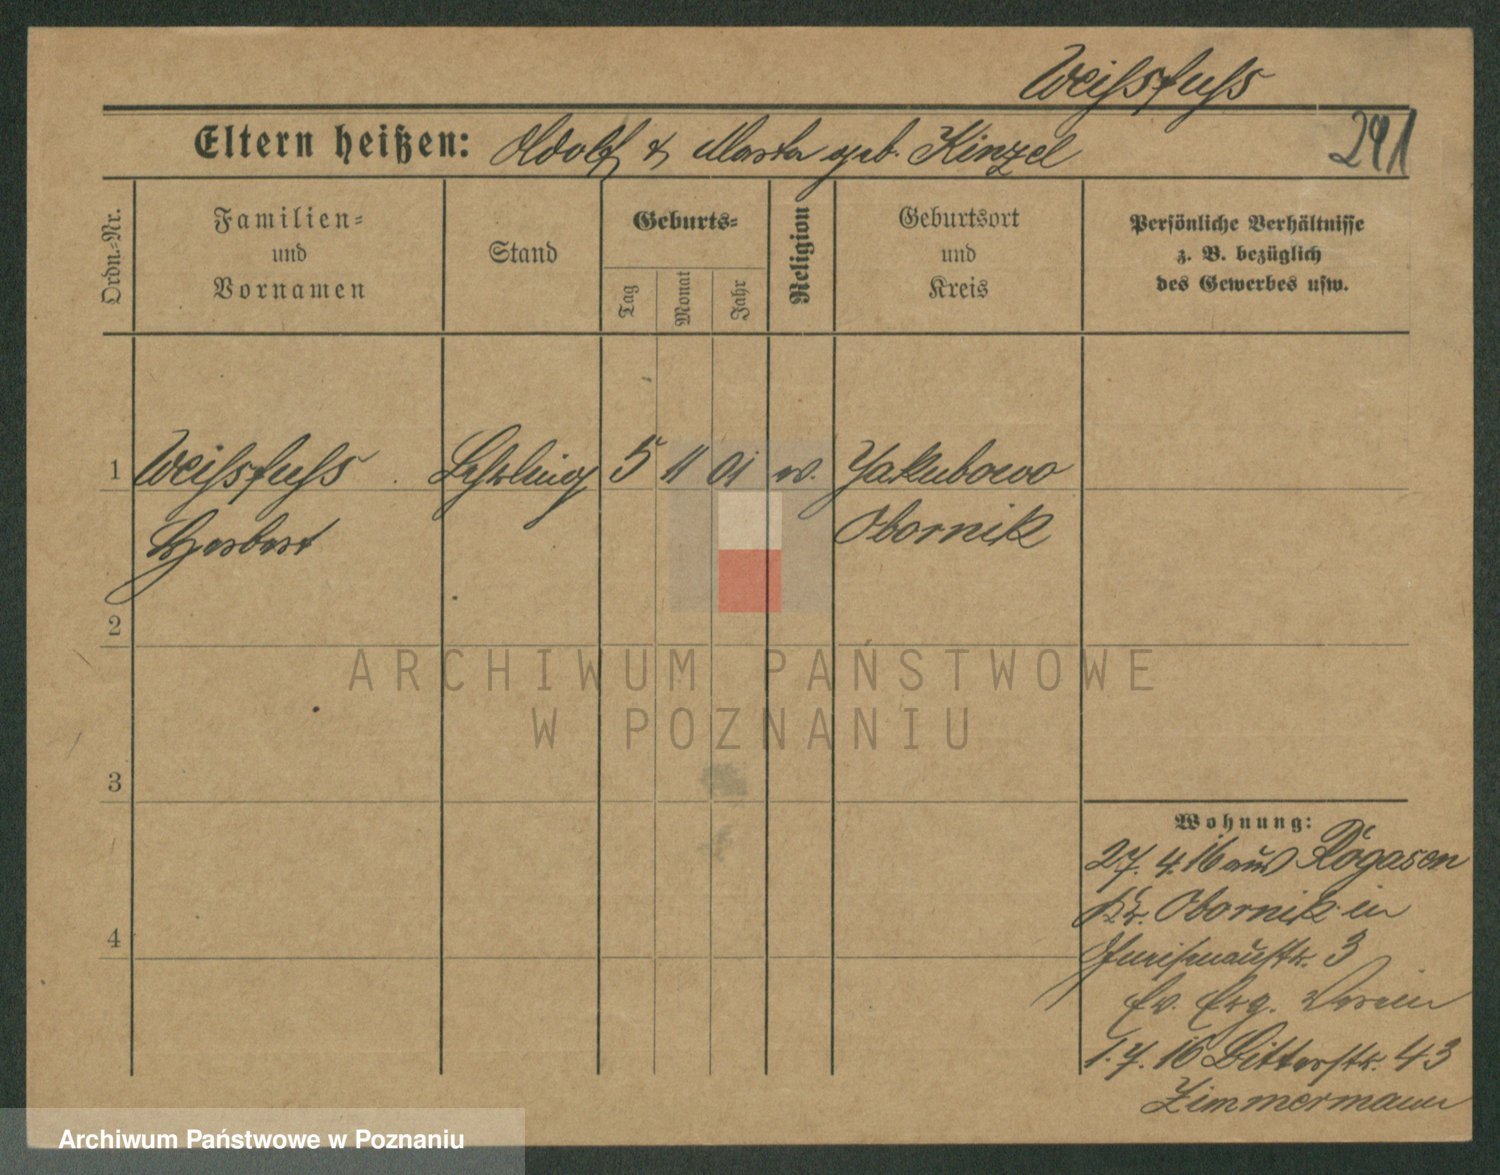 Weißfuß
Eltern heißen: Adolf & Marta geb. Kinzel
291
Ordn.-Nr.
Familien-
und
Vornamen
Stand
Geburts-
Tag
Monat
Jahr
Religion
Geburtsort
und
Kreis
Persönliche Verhältnisse
z. B. bezüglich
des Gewerbes usw.
1 Weißfuß Lehrling 5 11 01 ev. Jakubowo
Herbert Obornik
2
3
4
Wohnung:
27. 4. 16 aus Rogasen
Kr. Obornik in
3
Ev. Erz. Verein
1. 7. 16 Ritterstr. 43
Zimmermann
ARCHIWUM PAŃSTWOWE
W POZNANIU
Archiwum Państwowe w Poznaniu